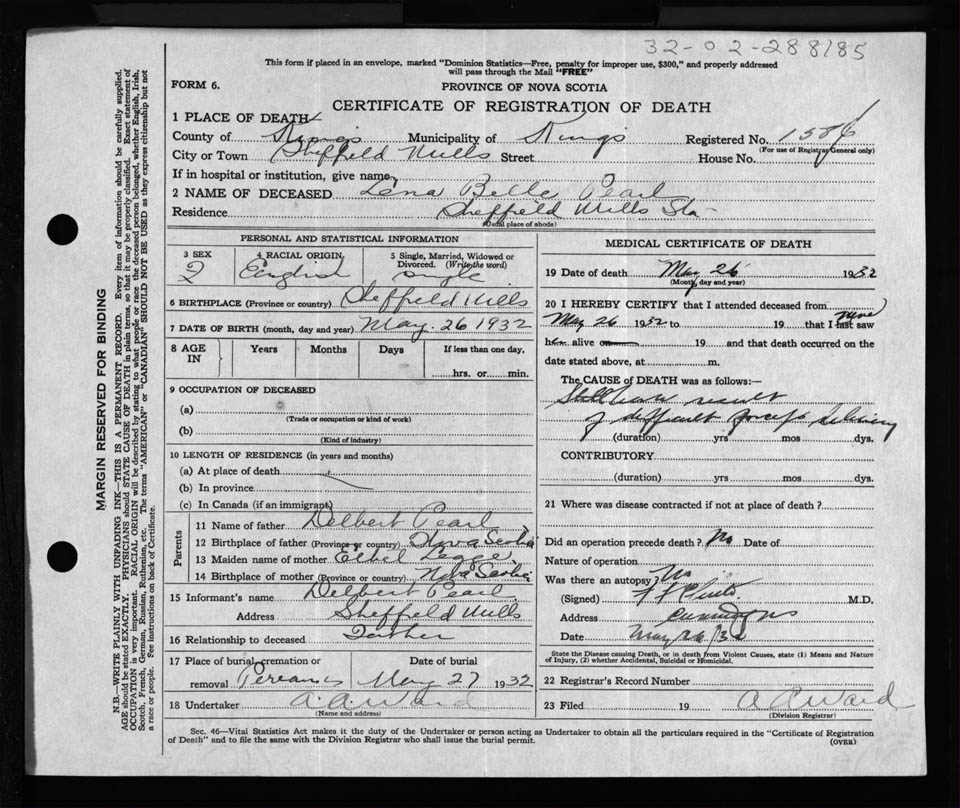 32-02-288185
This form if placed in an envelope, marked "Dominion Statistics—Free, penalty for improper use, $300," and properly addressed
will pass through the Mail "FREE"
FORM 6.
PROVINCE OF NOVA SCOTIA
CERTIFICATE OF REGISTRATION OF DEATH
1 PLACE OF DEATH
County of Kings Municipality of Kings Registered No. 1586
(For use of Registrar General only)
City or Town Sheffield Mills Street House No.
If in hospital or institution, give name
2 NAME OF DECEASED Lena Belle Pearl
Residence Sheffield Mills Sta
(Usual place of abode)
PERSONAL AND STATISTICAL INFORMATION
3 SEX 4 RACIAL ORIGIN 5 Single, Married, Widowed or Divorced. (Write the word)
2 English single
6 BIRTHPLACE (Province or country) Sheffield Mills
7 DATE OF BIRTH (month, day and year) May. 26 1932
8 AGE IN Years Months Days If less than one day,
hrs. or min.
9 OCCUPATION OF DECEASED
(a)
(Trade or occupation or kind of work)
(b)
(Kind of industry)
10 LENGTH OF RESIDENCE (in years and months)
(a) At place of death
(b) In province
(c) In Canada (if an immigrant)
Parents
11 Name of father Delbert Pearl
12 Birthplace of father (Province or country) Nova Scotia
13 Maiden name of mother Ethel Legge
14 Birthplace of mother (Province or country) Nova Scotia
15 Informant's name Delbert Pearl
Address Sheffield Mills
16 Relationship to deceased Father
17 Place of burial, cremation or removal Date of burial
Pereaus May 27 1932
18 Undertaker A. A. Ward
(Name and address)
MEDICAL CERTIFICATE OF DEATH
19 Date of death May 26 1932
(Month, day and year)
20 I HEREBY CERTIFY that I attended deceased from
May 26 1932 to 19 that I last saw never
h alive on 19 and that death occurred on the
date stated above, at m.
The CAUSE OF DEATH was as follows:—
Stillborn result
of difficult forceps delivery
(duration) yrs mos dys.
CONTRIBUTORY
(duration) yrs mos dys.
21 Where was disease contracted if not at place of death?
Did an operation precede death? No Date of
Nature of operation
Was there an autopsy? No
(Signed) M.D.
Address
Date May 26/32
State the Disease causing Death, or in death from Violent Causes, state (1) Means and Nature
of Injury, (2) whether Accidental, Suicidal or Homicidal.
22 Registrar's Record Number
23 Filed 19 A A Ward
(Division Registrar)
Sec. 46—Vital Statistics Act makes it the duty of the Undertaker or person acting as Undertaker to obtain all the particulars required in the "Certificate of Registration
of Death" and to file the same with the Division Registrar who shall issue the burial permit.
(OVER)
MARGIN RESERVED FOR BINDING
N.B.—WRITE PLAINLY WITH UNFADING INK—THIS IS A PERMANENT RECORD. Every item of information should be carefully supplied.
AGE should be stated EXACTLY. PHYSICIANS should STATE CAUSE OF DEATH in plain terms, so that it may be properly classified. Exact statement of
OCCUPATION is very important. RACIAL ORIGIN will be described by stating to what people or race the deceased person belonged, whether English, Irish,
Scotch, French, German, Russian, Ruthenian, etc. The terms "AMERICAN" or "CANADIAN" SHOULD NOT BE USED as they express citizenship but not
a race or people. See instructions on back of Certificate.